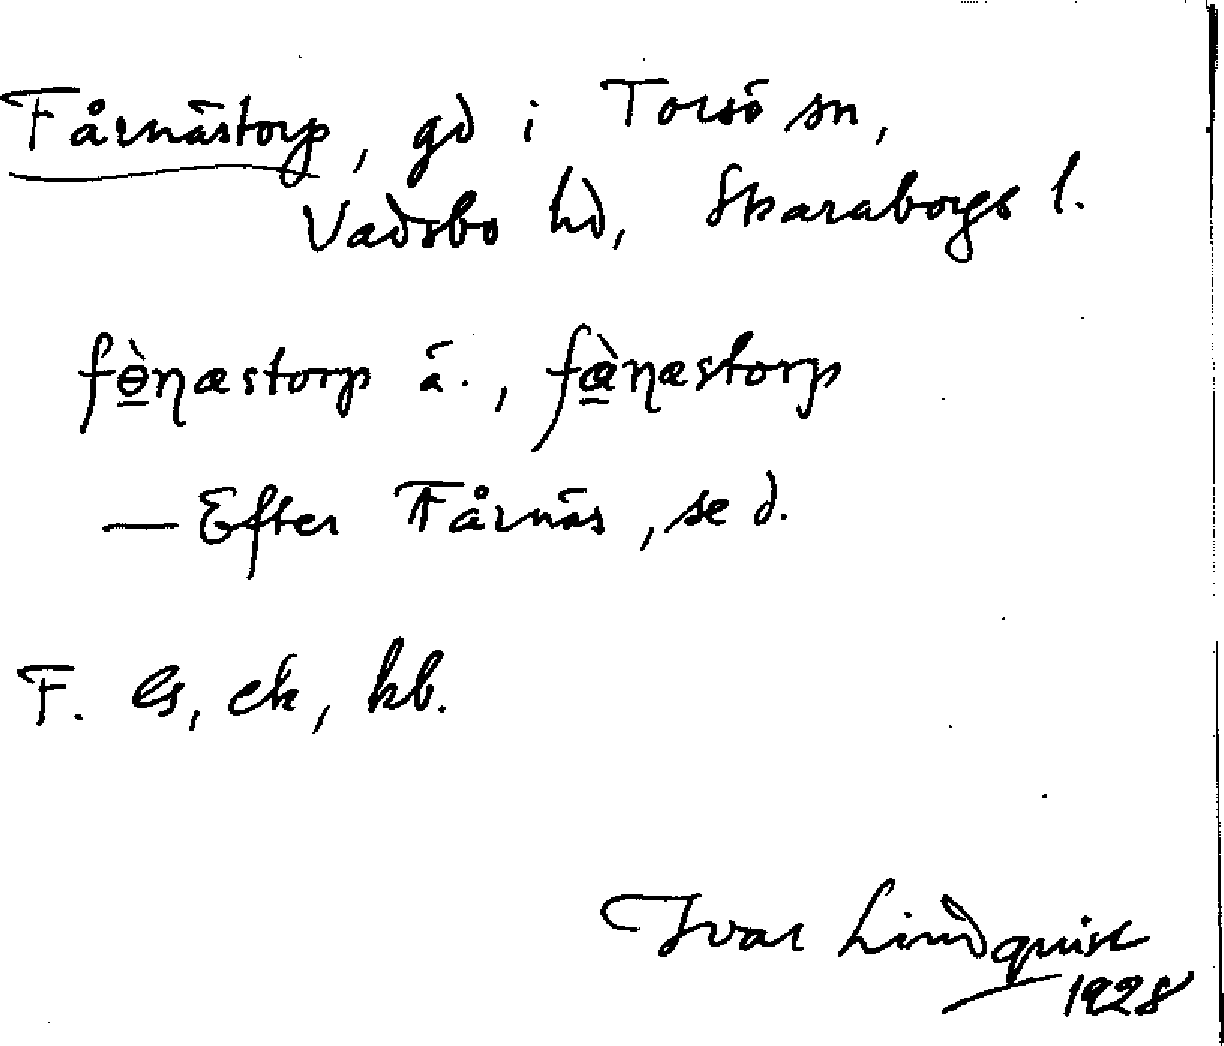 Fårnästorp, gd i Torsö sn,
Vadsbo hd, Skaraborgs l.
fɵ̀ŋæstorp ä., fæ̀ŋæstorp
— Efter Fårnäs, se d.
F. GS, ek, kb.
Ivar Lindquist
1928